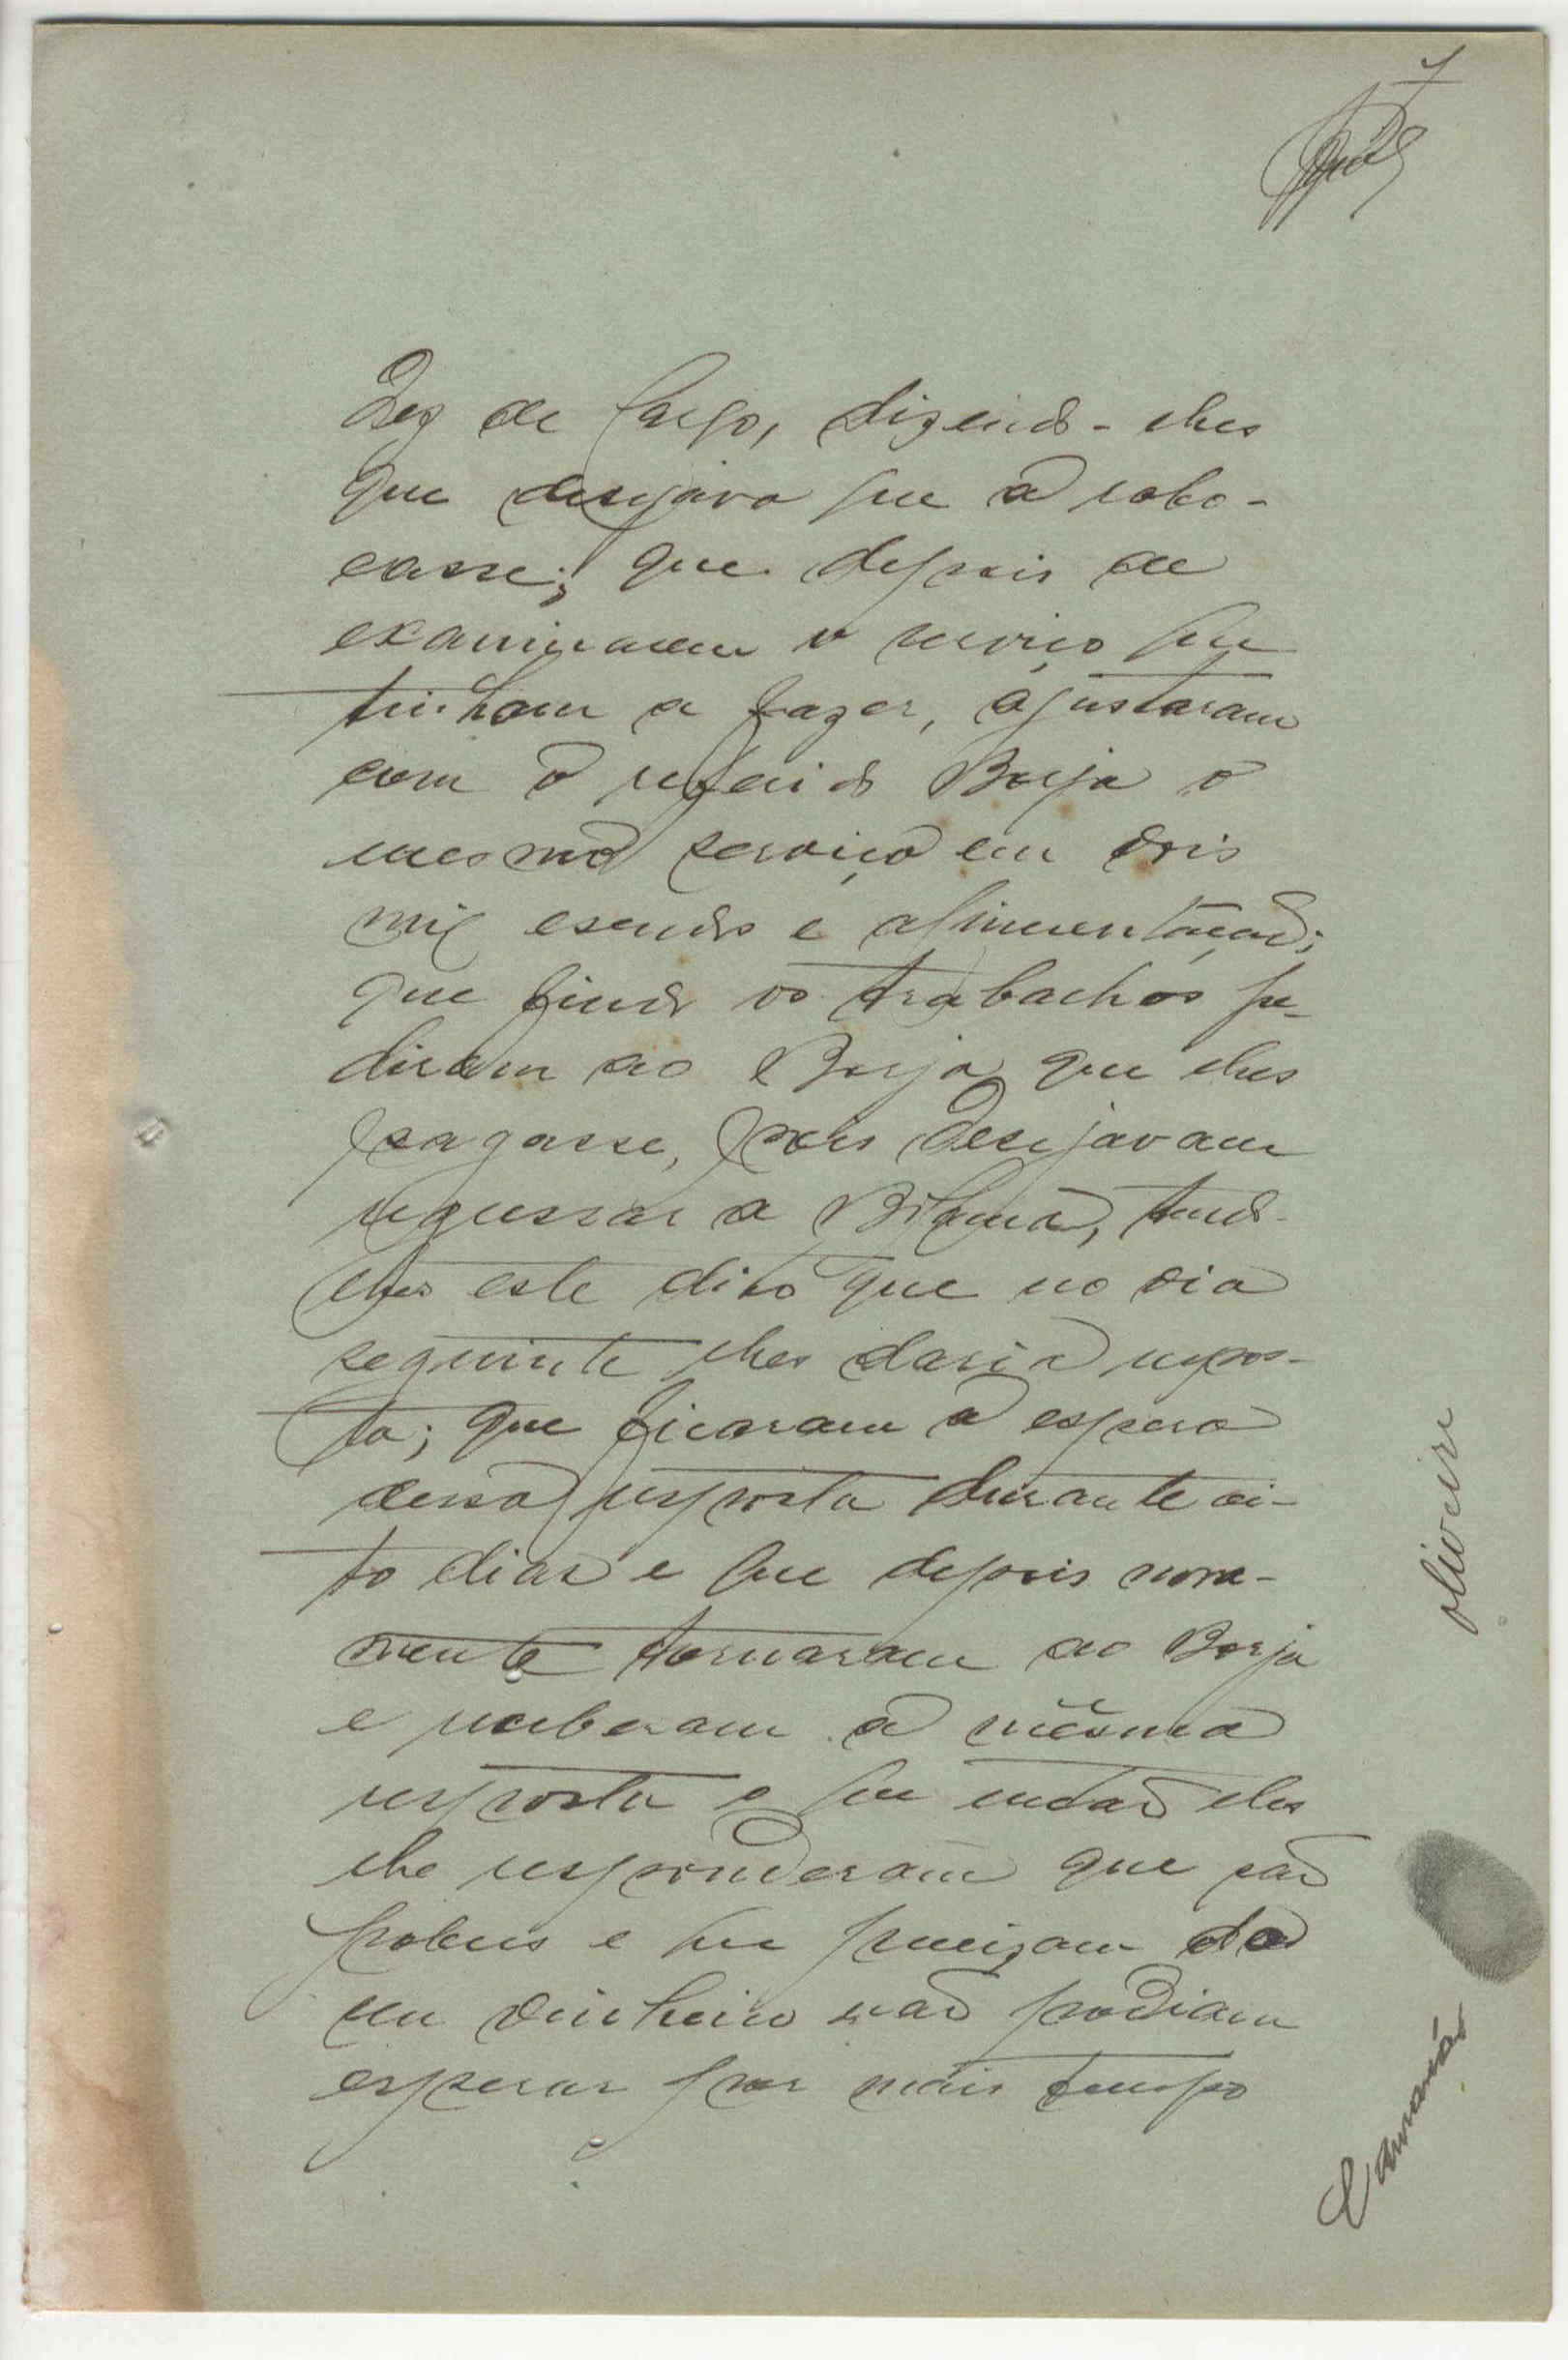 7
dez de largo, dizendo-lhes
que desejava que a rebo-
casse; que depois de
examinarem o serviço que
tinham a fazer, ajustaram
com o referido Borja o
mesmo serviço em dois
mil escudos e alimentação;
que findo os trabalhos pe-
diram ao Borja que lhes
pagasse, pois desejavam
regressar a Bolama, tendo-
lhes este dito que no dia
seguinte lhes daria respos-
ta; que ficaram a espera
dessa resposta durante oi-
to dias e que depois nova-
mente tornaram ao Borja
e receberam a mesma
resposta e que então eles
lhe responderam que são
pobres e que precizam do
seu dinheiro não podiam
esperar por mais tempo
oliveira